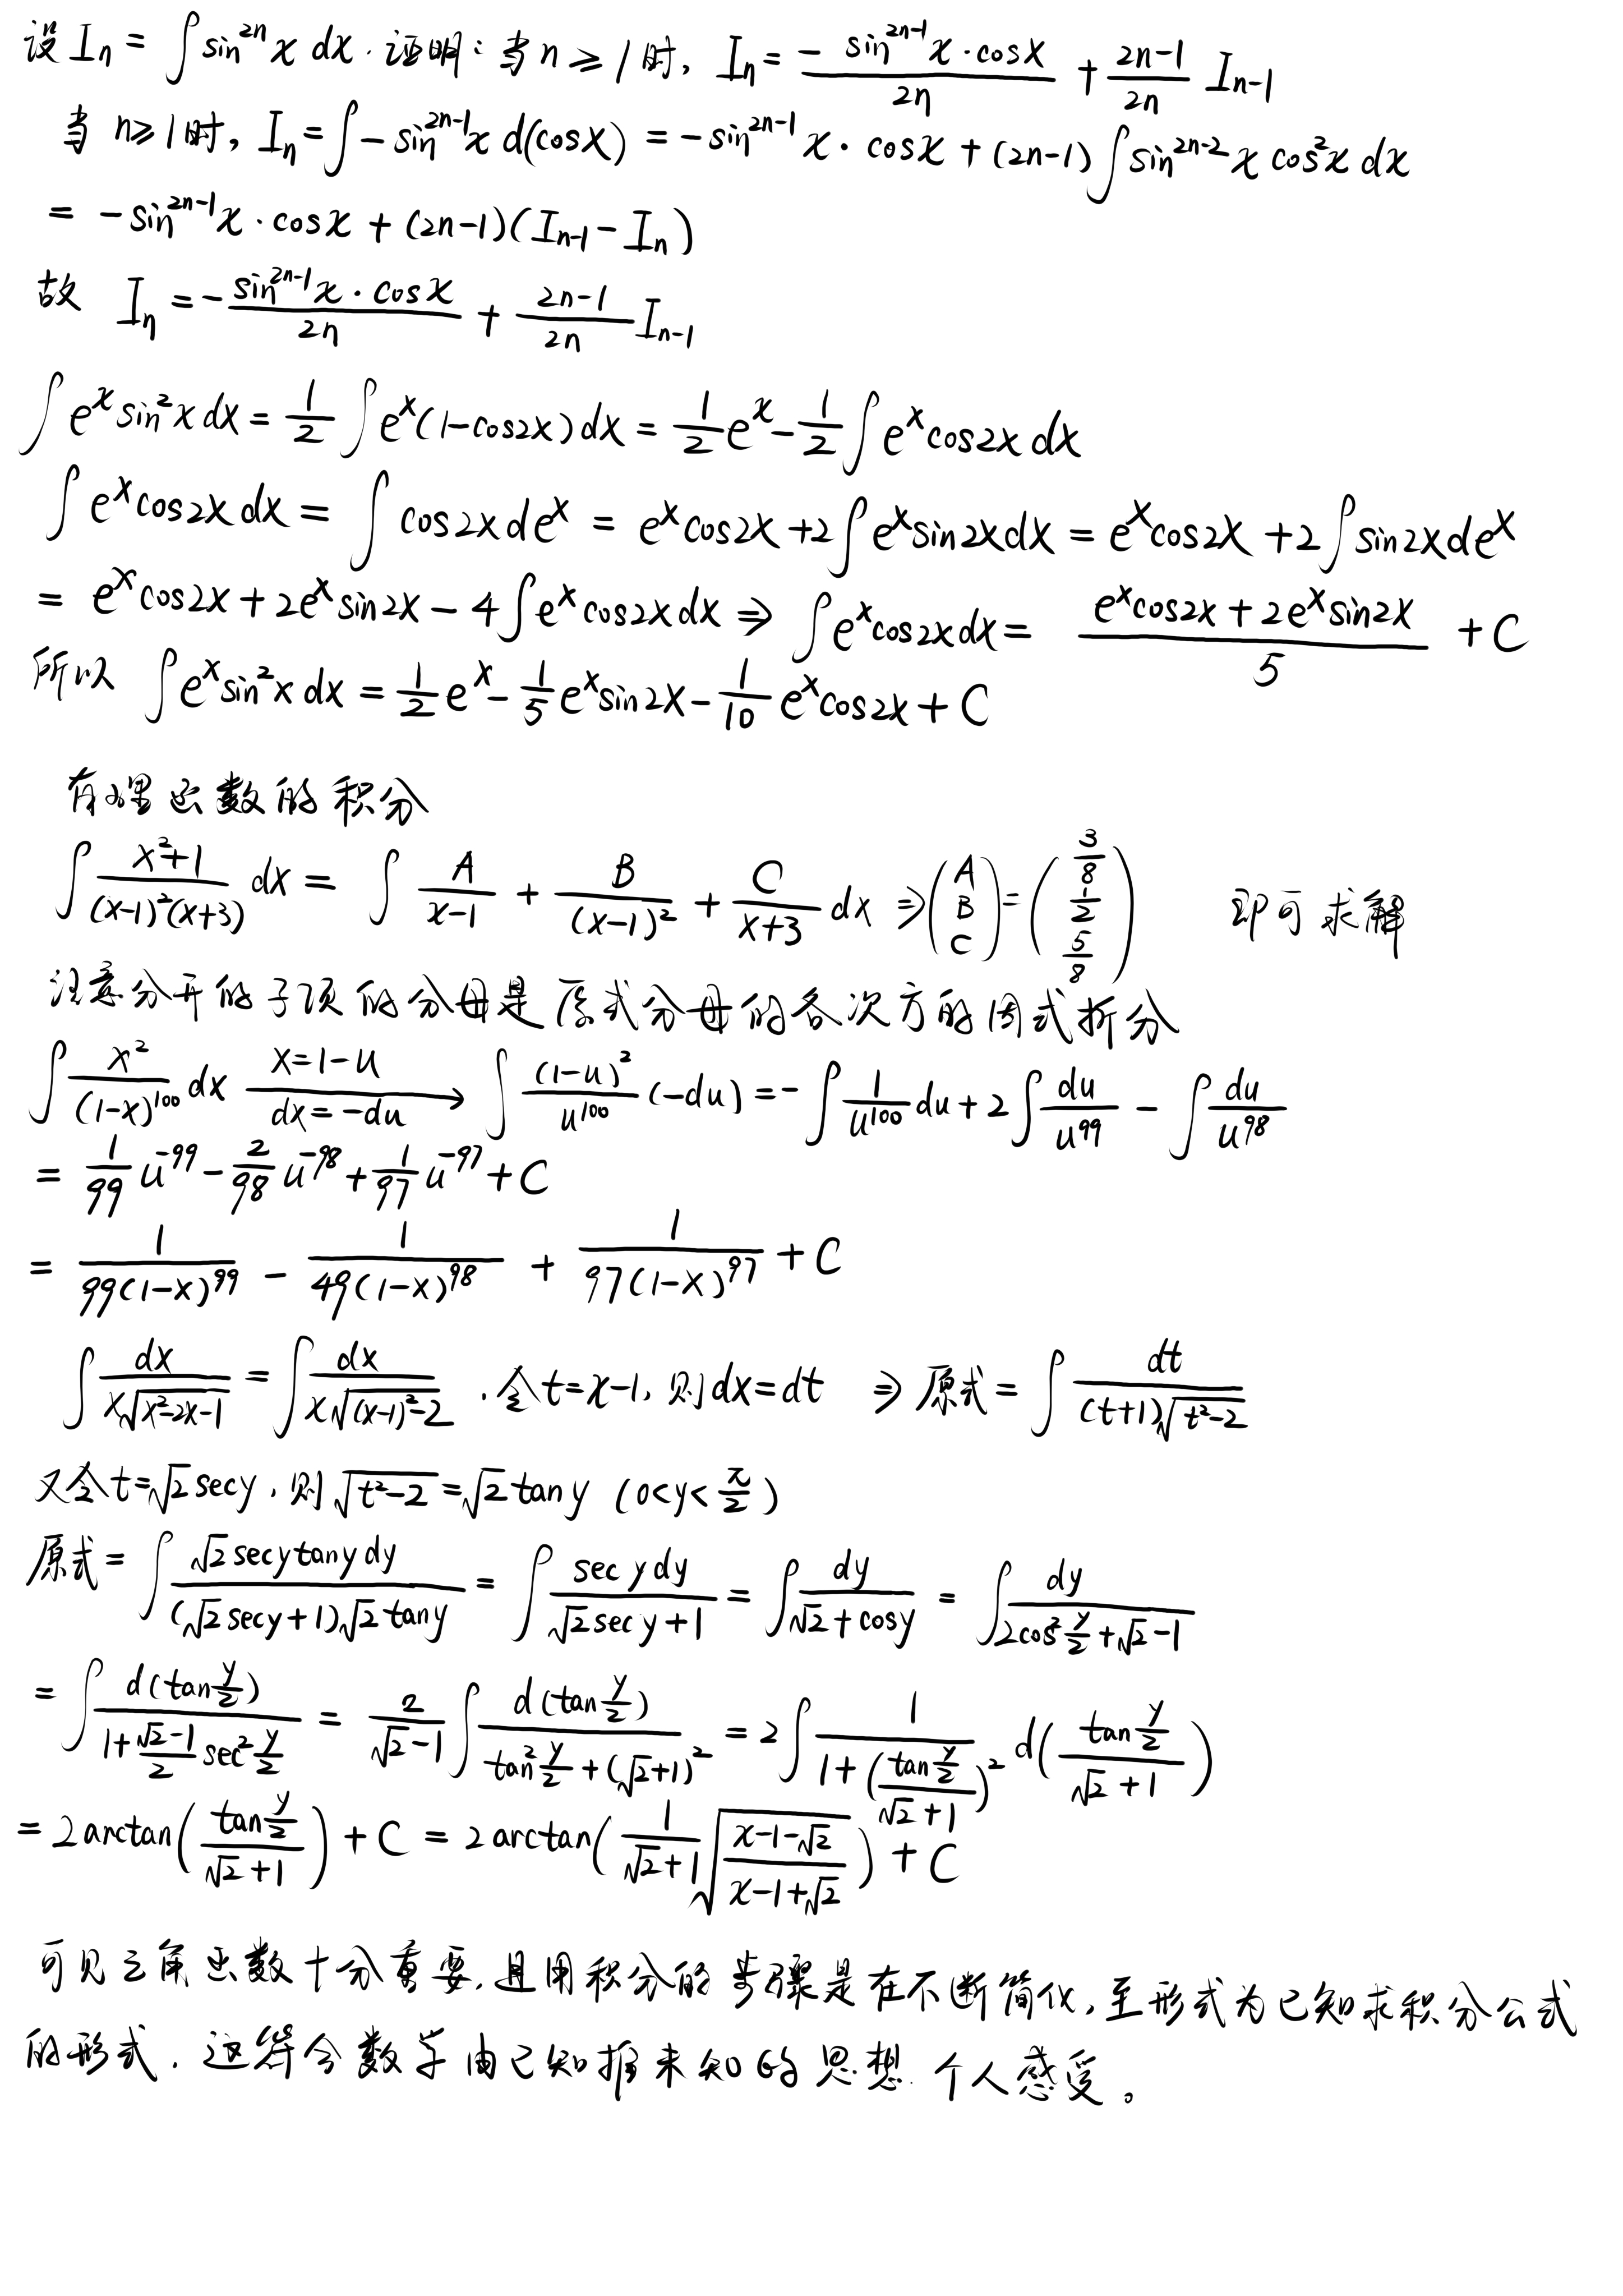 设 Iₙ = ∫ sin²ⁿ x dx . 证明：当 n ≥ 1 时, Iₙ = - (sin²ⁿ⁻¹x · cosx)/(2n) + (2n-1)/(2n) Iₙ₋₁
当 n≥1时, Iₙ = ∫ - sin²ⁿ⁻¹x d(cosx) = - sin²ⁿ⁻¹ x · cosx + (2n-1) ∫ sin²ⁿ⁻² x cos²x dx
= - sin²ⁿ⁻¹x · cosx + (2n-1)(Iₙ₋₁ - Iₙ)
故 Iₙ = - (sin²ⁿ⁻¹x · cosx)/(2n) + (2n-1)/(2n) Iₙ₋₁
∫ eˣ sin²x dx = 1/2 ∫ eˣ(1-cos2x)dx = 1/2 eˣ - 1/2 ∫ eˣcos2x dx
∫ eˣcos2x dx = ∫ cos2x deˣ = eˣcos2x + 2∫ eˣsin2x dx = eˣcos2x + 2∫ sin2x deˣ
= eˣcos2x + 2eˣsin2x - 4∫ eˣcos2x dx ⇒ ∫ eˣcos2x dx = (eˣcos2x + 2eˣsin2x)/5 + C
所以 ∫ eˣsin²x dx = 1/2 eˣ - 1/5 eˣsin2x - 1/10 eˣcos2x + C
有理函数的积分
∫ (x²+1)/((x-1)²(x+3)) dx = ∫ A/(x-1) + B/(x-1)² + C/(x+3) dx ⇒ (A B C) = (3/8 1/2 5/8) 即可求解
注意分开的子项的分母是原式分母的各次方的因式拆分
∫ x²/(1-x)¹⁰⁰ dx x=1-u dx=-du → ∫ (1-u)²/u¹⁰⁰ (-du) = - ∫ 1/u¹⁰⁰ du + 2∫ du/u⁹⁹ - ∫ du/u⁹⁸
= 1/99 u⁻⁹⁹ - 2/98 u⁻⁹⁸ + 1/97 u⁻⁹⁷ + C
= 1/(99(1-x)⁹⁹) - 1/(49(1-x)⁹⁸) + 1/(97(1-x)⁹⁷) + C
∫ dx/(x√(x²-2x-1)) = ∫ dx/(x√((x-1)²-2)) . 令t=x-1, 则dx=dt ⇒ 原式 = ∫ dt/((t+1)√(t²-2))
又令t=√2 secy, 则√(t²-2) = √2 tan y (0<y<π/2)
原式 = ∫ (√2 secy tany dy)/((√2 secy+1)√2 tany) = ∫ (sec y dy)/(√2 sec y+1) = ∫ dy/(√2+cosy) = ∫ dy/(2cos² y/2 + √2 -1)
= ∫ d(tan y/2)/(1+ (√2-1)/2 sec² y/2) = 2/(√2-1) ∫ d(tan y/2)/(tan² y/2 + (√2+1)²) = 2∫ 1/(1+((tan y/2)/(√2+1))²) d((tan y/2)/(√2+1))
= 2 arctan((tan y/2)/(√2+1)) + C = 2 arctan(1/(√2+1) √((x-1-√2)/(x-1+√2))) + C
可见三角函数十分重要, 且用积分的步骤是在不断简化, 至形式为已知求积分公式
的形式. 这符合数学由已知推未知的思想. 个人感受。